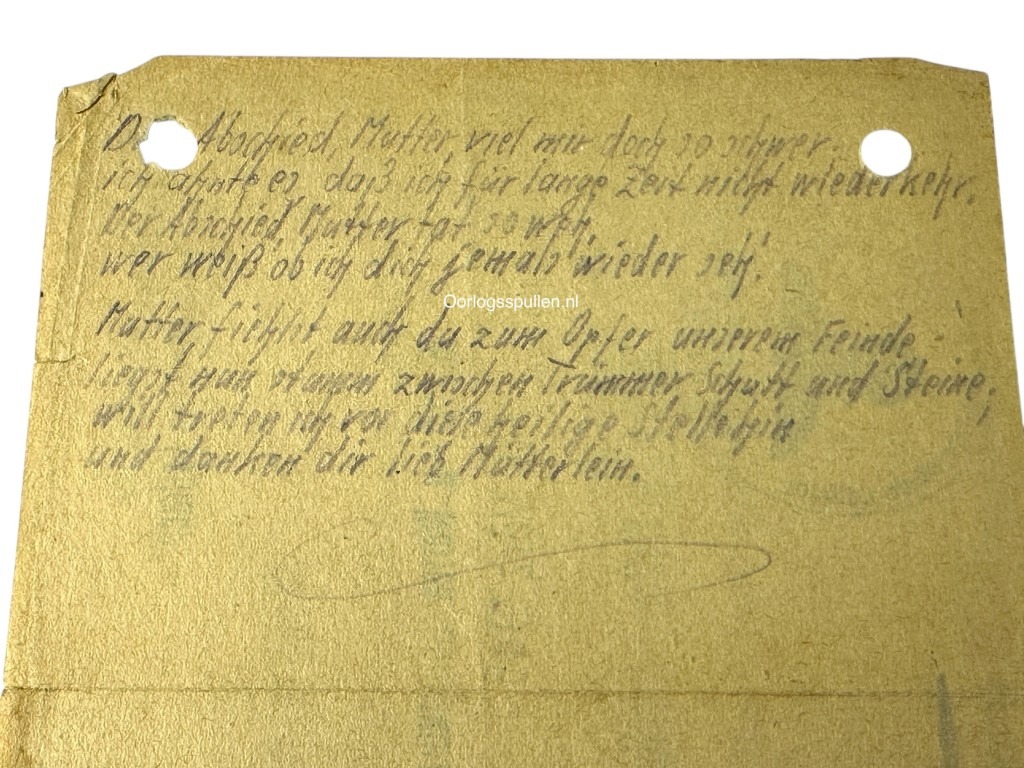 D Abschied, Mutter, viel mir doch so schwer.
ich ahnte es, daß ich für lange Zeit nicht wiederkehr.
Der Abschied, Mutter tat so weh,
wer weiß ob ich dich jemals wieder seh!
Oorlogsspullen.nl
Mutter fielst auch du zum Opfer unserem Feinde -
liegst nun zwischen Trümmer Schutt und Steine;
will treten ich vor diese heilige Stelle hin
und danken dir lieb Mütterlein.